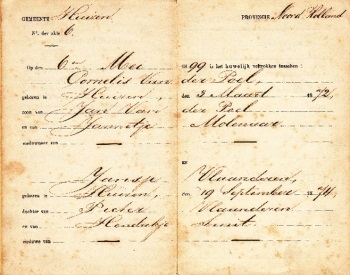 GEMEENTE Huizen.
PROVINCIE Noord Holland
No. der akte 6.
Op den 6en Mei 1899 is het huwelijk voltrokken tusschen:
Cornelis van der Poel,
geboren te Huizen, den 3 Maart 1872,
zoon van Jan van der Poel
en van Jannetje Molenaar
en
Jansje Vlaanderen,
geboren te Huizen, den 19 September 1874,
dochter van Pieter Vlaanderen
en van Hendrikje